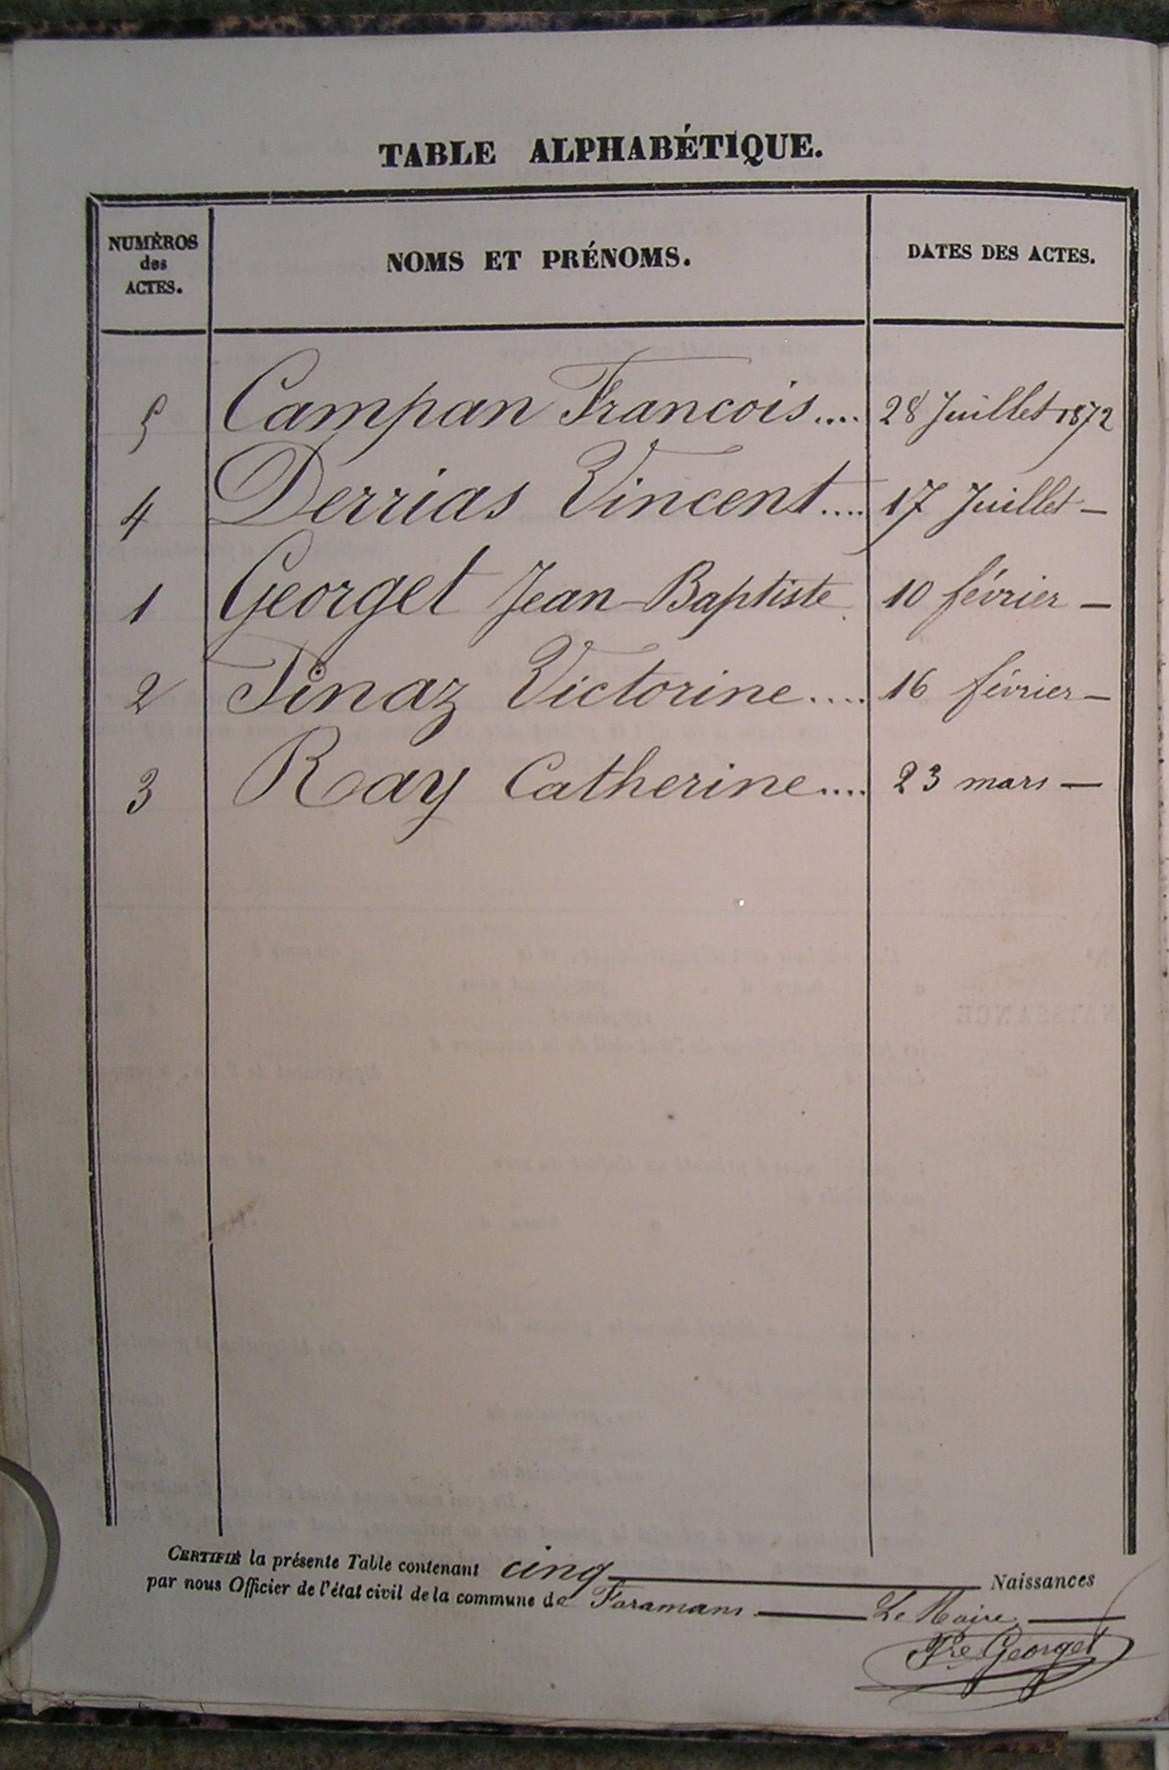 TABLE ALPHABÉTIQUE.
NUMÉROS des ACTES. NOMS ET PRÉNOMS. DATES DES ACTES.
5 Campan Francois.... 28 Juillet 1872
4 Derrias Vincent.... 17 Juillet —
1 Georget Jean-Baptiste 10 février —
2 Pinaz Victorine.... 16 février —
3 Ray Catherine.... 23 mars —
CERTIFIÉ la présente Table contenant cinq Naissances
par nous Officier de l'état civil de la commune de Faramans Le Maire
Georget